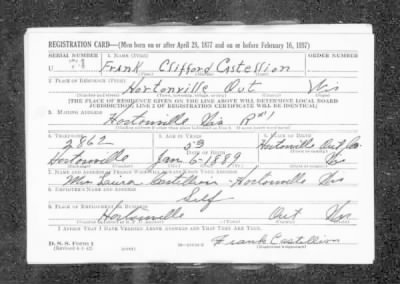 REGISTRATION CARD—(Men born on or after April 28, 1877 and on or before February 16, 1897)
SERIAL NUMBER 1. NAME (Print) ORDER NUMBER
U Frank Clifford Castellion
(First) (Middle) (Last)
2. PLACE OF RESIDENCE (Print)
Hortonville Out Wis
(Number and street) (Town, township, village, or city) (County) (State)
[THE PLACE OF RESIDENCE GIVEN ON THE LINE ABOVE WILL DETERMINE LOCAL BOARD
JURISDICTION; LINE 2 OF REGISTRATION CERTIFICATE WILL BE IDENTICAL]
3. MAILING ADDRESS
Hortonville Wis R#1
[Mailing address if other than place indicated on line 2. If same insert word same]
4. TELEPHONE 5. AGE IN YEARS 6. PLACE OF BIRTH
2862 53 Hortonville Out Co
DATE OF BIRTH
Hortonville Jan 6-1889 Wis
(Exchange) (Number) (Mo.) (Day) (Yr.) (State or country)
7. NAME AND ADDRESS OF PERSON WHO WILL ALWAYS KNOW YOUR ADDRESS
Mrs Laura Castellion Hortonville Wis
8. EMPLOYER'S NAME AND ADDRESS
Self
9. PLACE OF EMPLOYMENT OR BUSINESS
Hortonville Out Wis
(Number and street or R. F. D. number) (Town) (County) (State)
I AFFIRM THAT I HAVE VERIFIED ABOVE ANSWERS AND THAT THEY ARE TRUE.
D. S. S. Form 1
(Revised 4-1-42) (over) Frank Castellion
(Registrant's signature)